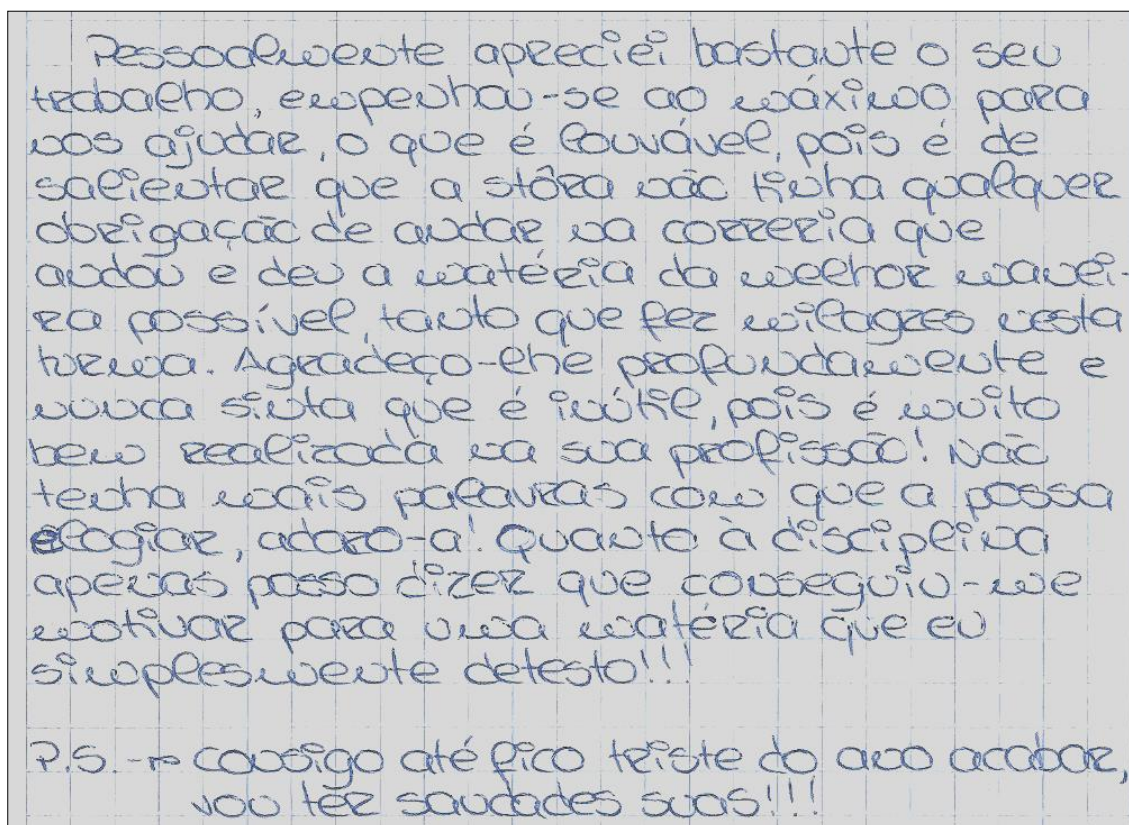 Pessoalmente apreciei bastante o seu
trabalho, empenhou-se ao máximo para
nos ajudar, o que é louvável, pois é de
salientar que a stôra não tinha qualquer
obrigação de andar na correria que
andou e deu a matéria da melhor manei-
ra possível, tanto que fez milagres nesta
turma. Agradeço-lhe profundamente e
nunca sinta que é inútil, pois é muito
bem realizada na sua profissão! Não
tenha mais palavras com que a possa
elogiar, adoro-a! Quanto à disciplina
apenas posso dizer que conseguiu-me
motivar para uma matéria que eu
simplesmente detesto!!!
P.S. -> consigo até fico triste do ano acabar,
vou ter saudades suas!!!